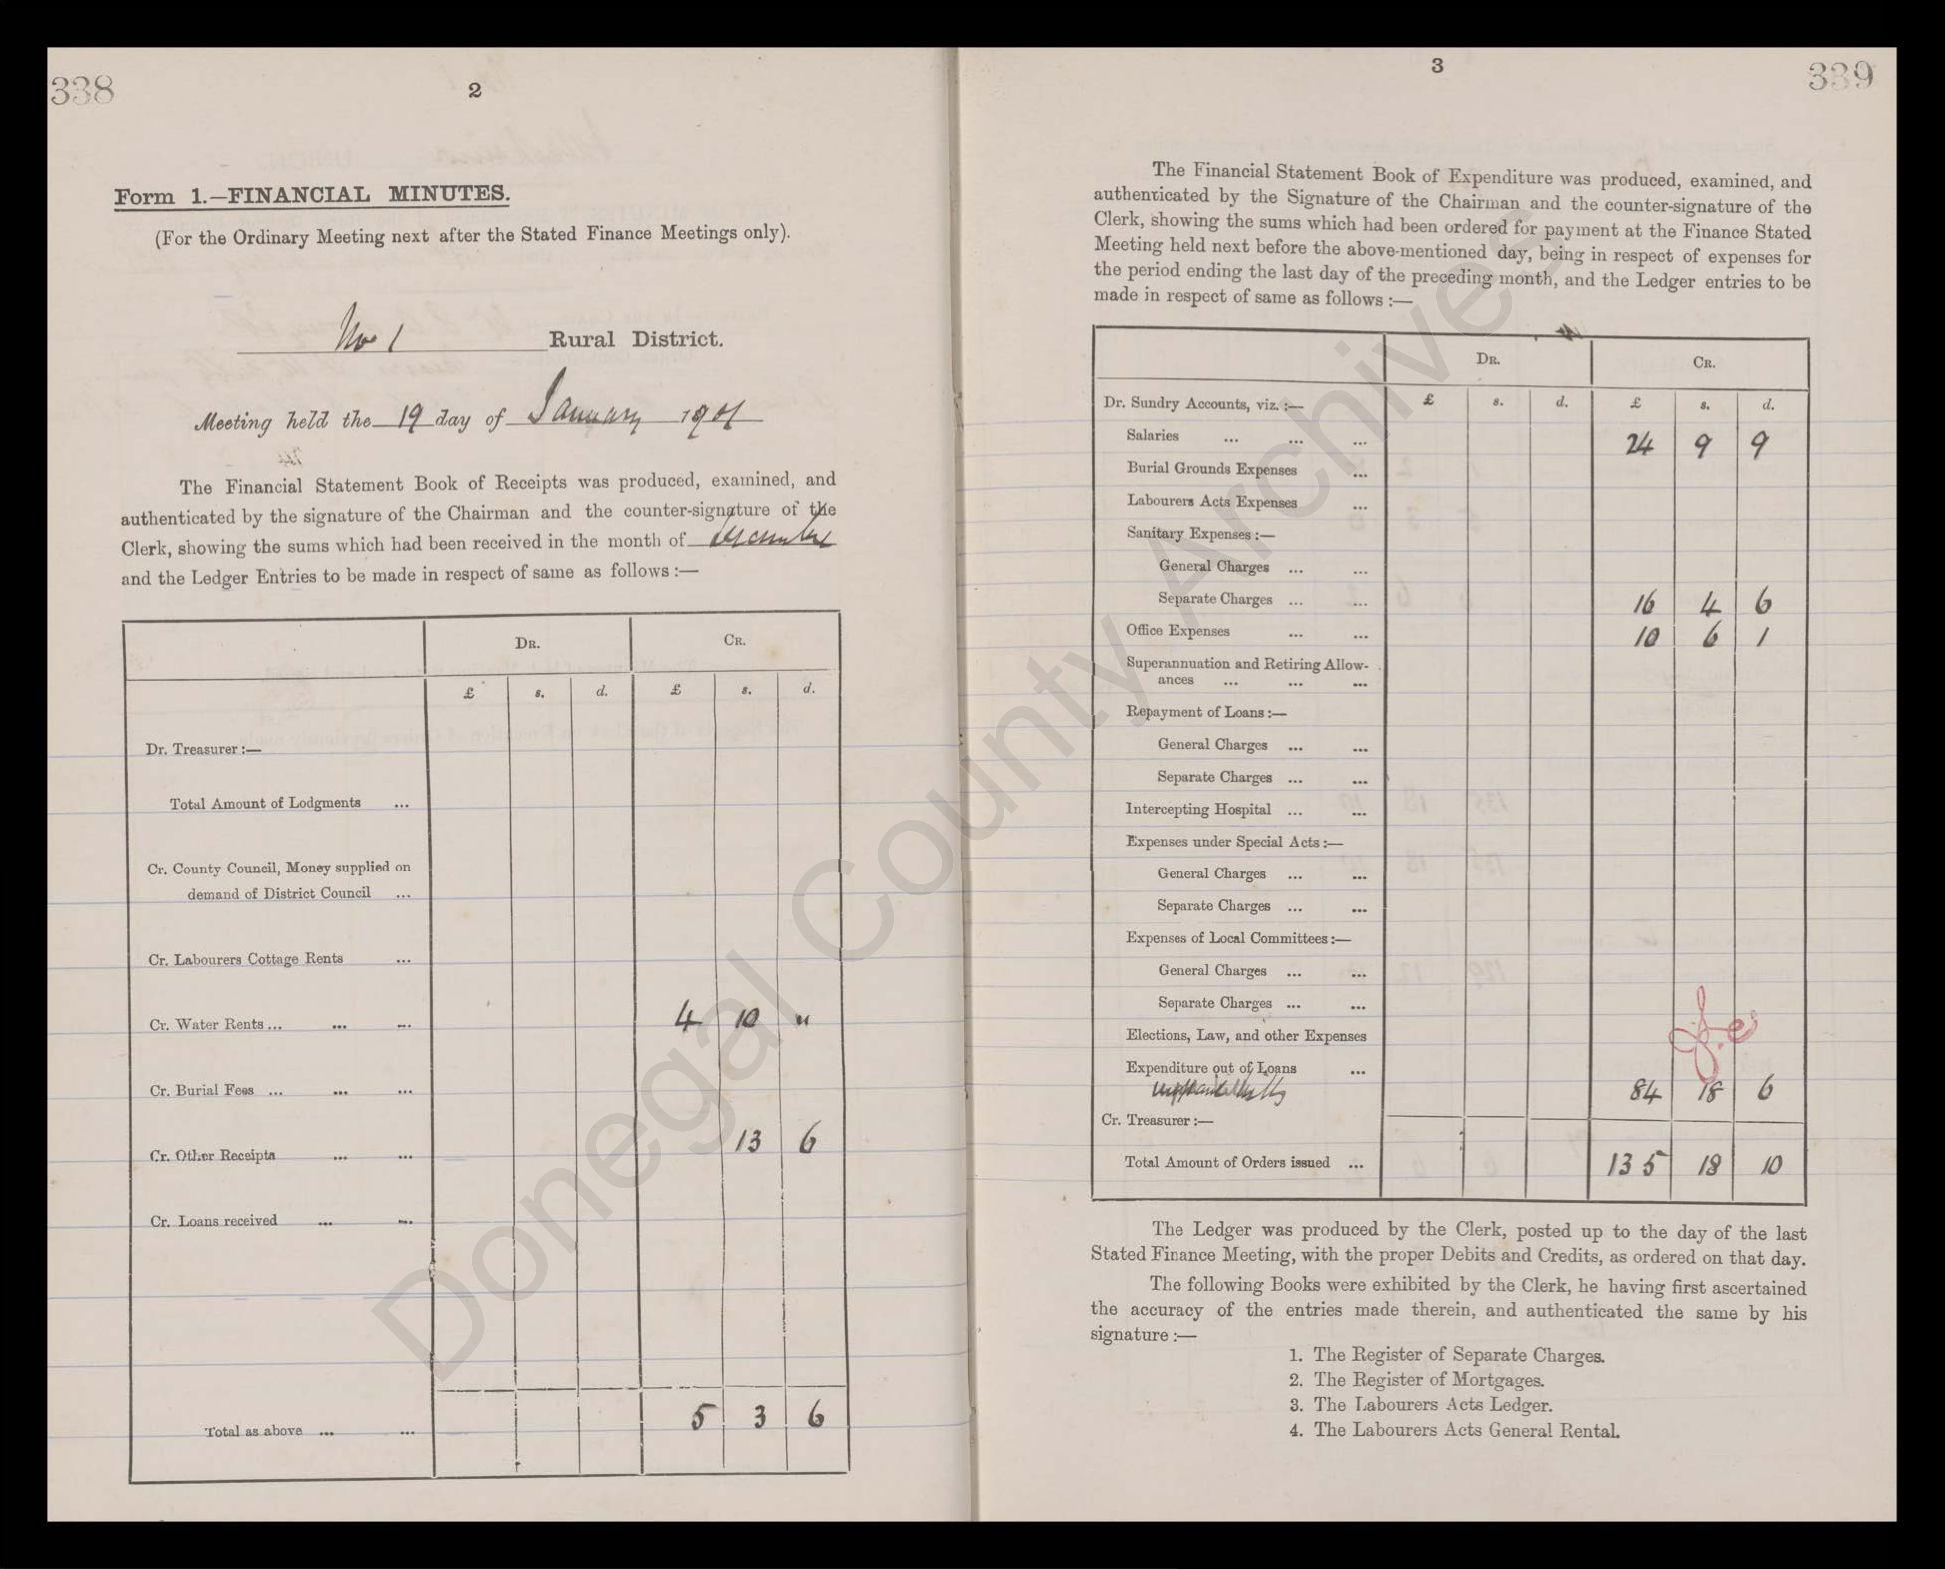 338
2
Form 1.—FINANCIAL MINUTES.
(For the Ordinary Meeting next after the Stated Finance Meetings only).
No 1 Rural District.
Meeting held the 19 day of January 1901
The Financial Statement Book of Receipts was produced, examined, and
authenticated by the signature of the Chairman and the counter-signature of the
Clerk, showing the sums which had been received in the month of December
and the Ledger Entries to be made in respect of same as follows :—
DR. CR.
£ s. d. £ s. d.
Dr. Treasurer :—
Total Amount of Lodgments ...
Cr. County Council, Money supplied on
demand of District Council ...
Cr. Labourers Cottage Rents ...
Cr. Water Rents ... ... ... 4 10 "
Cr. Burial Fees ... ... ...
Cr. Other Receipts ... ... 13 6
Cr. Loans received ... ...
Total as above ... ... 5 3 6
3
339
The Financial Statement Book of Expenditure was produced, examined, and
authenticated by the Signature of the Chairman and the counter-signature of the
Clerk, showing the sums which had been ordered for payment at the Finance Stated
Meeting held next before the above-mentioned day, being in respect of expenses for
the period ending the last day of the preceding month, and the Ledger entries to be
made in respect of same as follows :—
DR. CR.
Dr. Sundry Accounts, viz. :— £ s. d. £ s. d.
Salaries ... ... ... 24 9 9
Burial Grounds Expenses ...
Labourers Acts Expenses ...
Sanitary Expenses :—
General Charges ... ...
Separate Charges ... ... 16 4 6
Office Expenses ... ... 10 6 1
Superannuation and Retiring Allow-
ances ... ... ...
Repayment of Loans :—
General Charges ... ...
Separate Charges ... ...
Intercepting Hospital ... ...
Expenses under Special Acts :—
General Charges ... ...
Separate Charges ... ...
Expenses of Local Committees :—
General Charges ... ...
Separate Charges ... ...
Elections, Law, and other Expenses
Expenditure out of Loans ...
84 18 6
Cr. Treasurer :—
Total Amount of Orders issued ... 135 18 10
The Ledger was produced by the Clerk, posted up to the day of the last
Stated Finance Meeting, with the proper Debits and Credits, as ordered on that day.
The following Books were exhibited by the Clerk, he having first ascertained
the accuracy of the entries made therein, and authenticated the same by his
signature :—
1. The Register of Separate Charges.
2. The Register of Mortgages.
3. The Labourers Acts Ledger.
4. The Labourers Acts General Rental.
Donegal County Archives